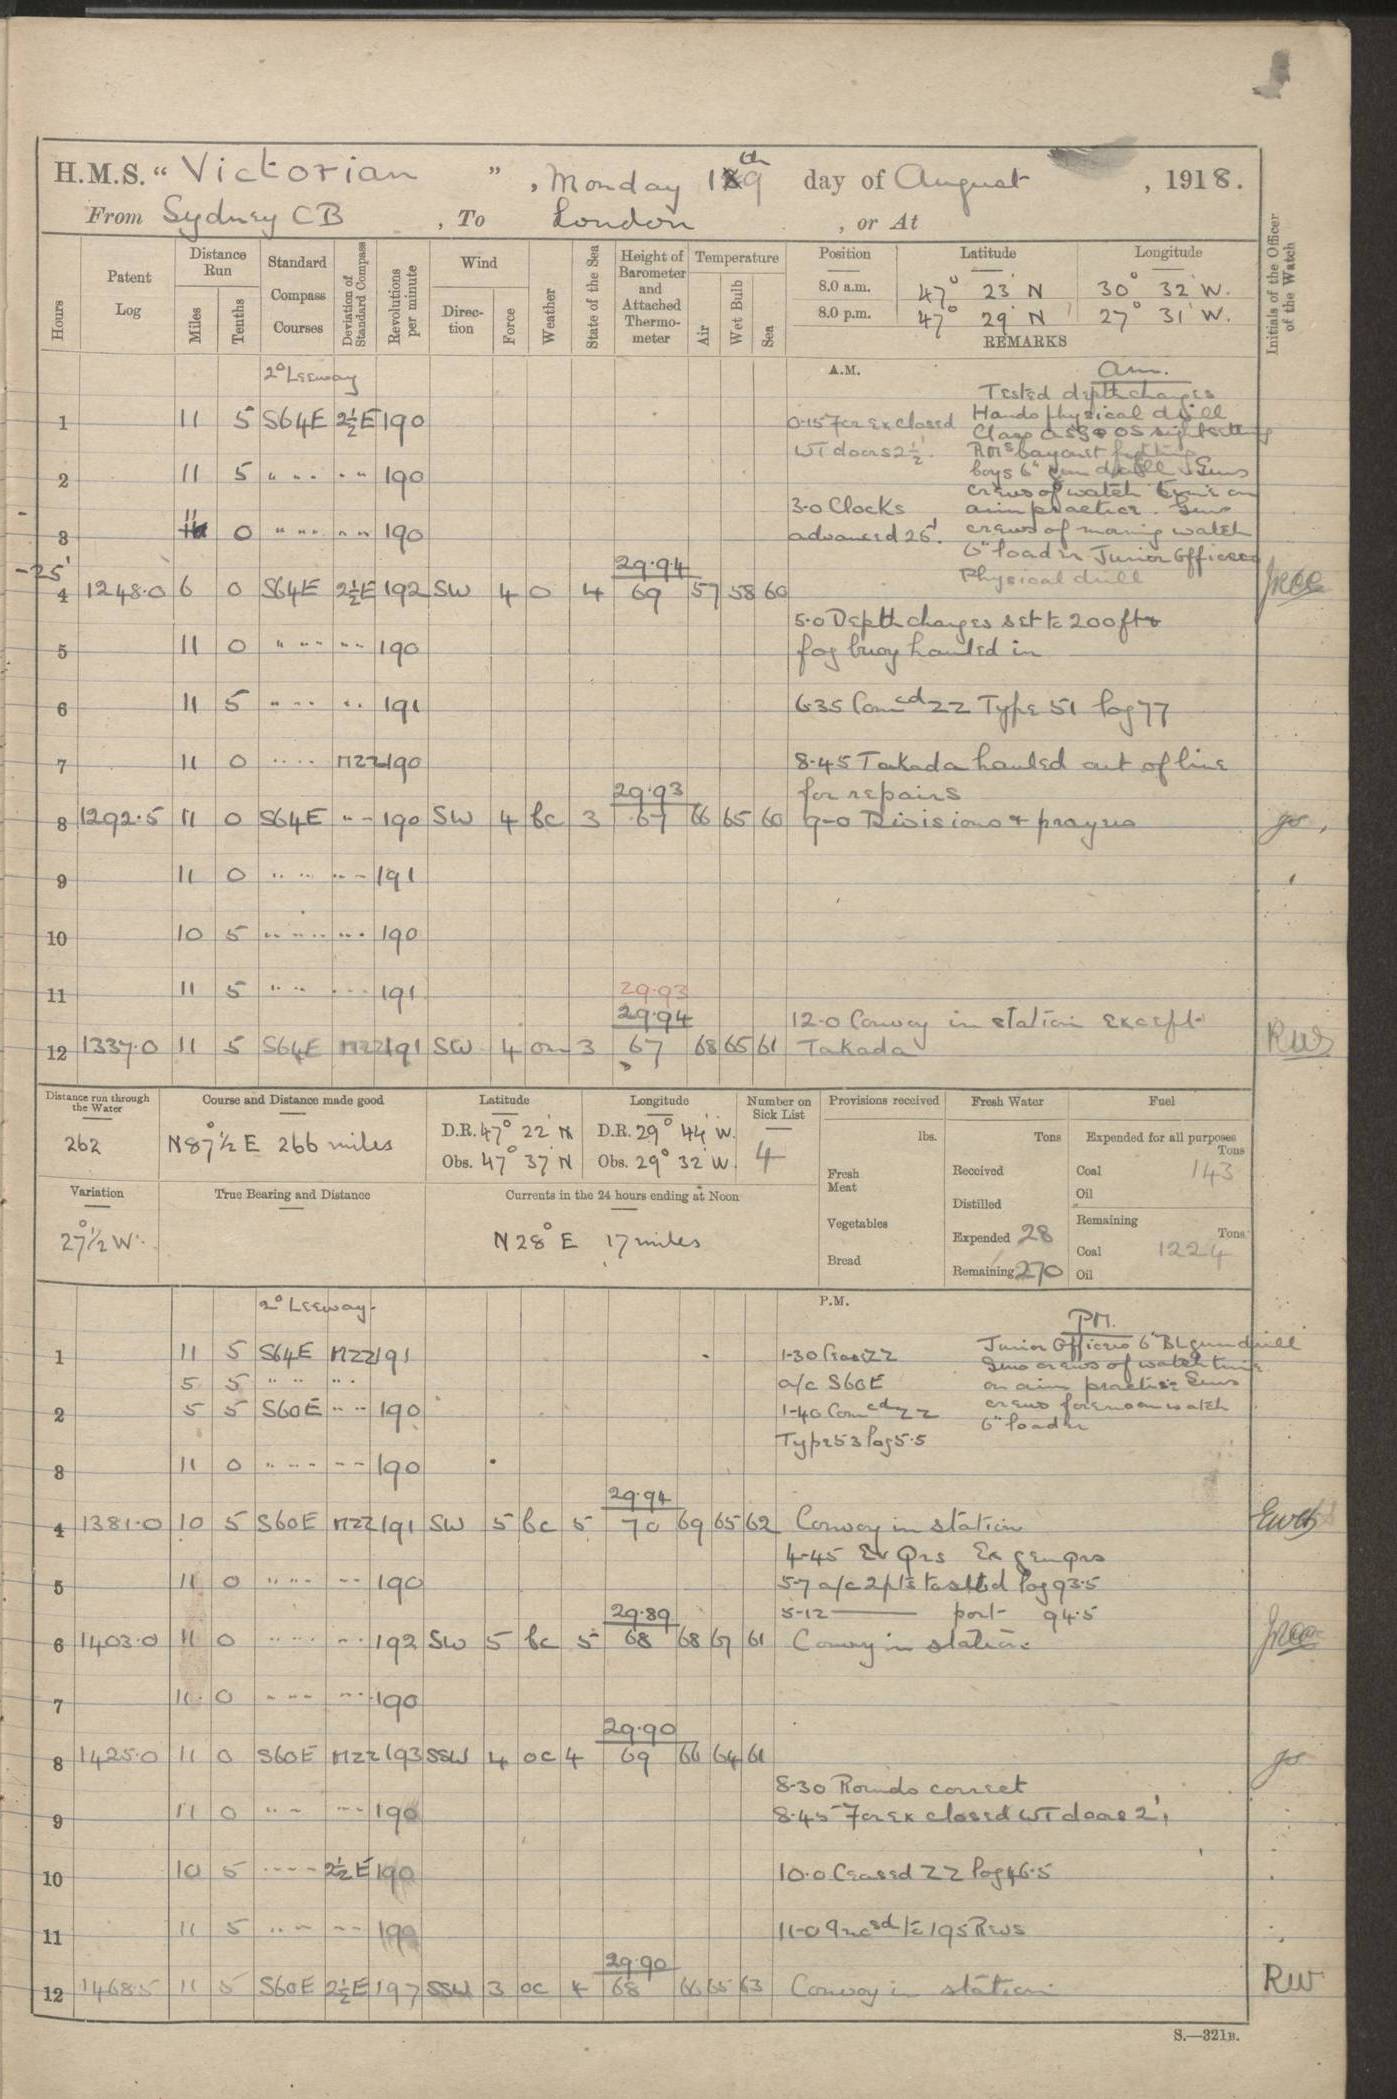 H.M.S. “ Victorian ” , Monday 19th day of August , 1918.
From Sydney CB , To London , or At
Hours
Patent Log
Distance Run
Miles
Tenths
Standard Compass Courses
Deviation of Standard Compass
Revolutions per minute
Wind
Direction
Force
Weather
State of the Sea
Height of Barometer and Attached Thermometer
Temperature
Air
Wet Bulb
Sea
Position Latitude Longitude
8.0 a.m. 47° 23' N 30° 32' W.
8.0 p.m. 47° 29' N 27° 31' W.
REMARKS
Initials of the Officer of the Watch
A.M.
2° Leeway
am.
Tested depthcharges
Hands physical drill
Class OS sightsetting
RMs bayonet fighting
boys 6" gun drill Guns
crews of watch time on
aim practice. Guns
crews of morning watch
6" loader Junior Officers
Physical drill
1 11 5 S64E 2½E 190 0.15 For Ex closed
WT doors 2½'.
2 11 5 " " " " " 190
3.0 Clocks
3 11 0 " " " " " 190 advanced 25'.
-25'
29.94
4 1248.0 6 0 S64E 2½E 192 SW 4 0 4 69 57 58 60
5.0 Depthcharges set to 200ft &
5 11 0 " " " " " 190 fog buoy hauled in
6 11 5 " " " " " 191 6.35 Comcd ZZ Type 51 log 77
7 11 0 " " " " MZZ 190 8.45 Takada hauled out of line
for repairs
29.93
8 1292.5 11 0 S64E " " 190 SW 4 bc 3 67 66 65 60 9-0 Divisions & prayers
9 11 0 " " " " " 191
10 10 5 " " " " " 190
11 11 5 " " " " " 191 29.93
29.94
12.0 Convoy in station except
12 1337.0 11 5 S64E MZZ 191 SW 4 om 3 67 68 65 61 Takada RW
Distance run through the Water
262
Course and Distance made good
N 87½° E 266 miles
Latitude
D.R. 47° 22' N
Obs. 47° 37' N
Longitude
D.R. 29° 44' W.
Obs. 29° 32' W.
Number on Sick List
4
Provisions received
lbs.
Fresh Meat
Vegetables
Bread
Fresh Water
Tons
Received
Distilled
Expended 28
Remaining 270
Fuel
Expended for all purposes
Tons
Coal 143
Oil
Remaining
Tons
Coal 1224
Oil
Variation
27½° W.
True Bearing and Distance
Currents in the 24 hours ending at Noon
N 28° E 17 miles
P.M.
2° Leeway.
PM.
Junior Officers 6" BL gun drill
Guns crews of watch time
on aim practise Guns
crews forenoon watch
6" loader
1 11 5 S64E MZZ 191 1-30 Ceas ZZ
5 5 " " " " a/c S60E
2 5 5 S60E " " 190 1-40 Comcd ZZ
Type 53 log 5.5
3 11 0 " " " " " 190
29.94
4 1381.0 10 5 S60E MZZ 191 SW 5 bc 5 70 69 65 62 Convoy in station
4-45 Ev Qrs Ex gen qrs
5 11 0 " " " " " 190 5-7 a/c 2pts to stbd log 93.5
5-12 —— port 94.5
29.89
6 1403.0 11 0 " " " " " 192 SW 5 bc 5 68 68 67 61 Convoy in station
7 11 0 " " " " " 190
29.90
8 1425.0 11 0 S60E MZZ 193 SSW 4 oc 4 69 66 64 61
8-30 Rounds correct
9 11 0 " " " " 190 8.45 For Ex closed WT doors 2'
10 10 5 " " " " 2½E 190 10.0 Ceased ZZ log 46.5
11 11 5 " " " " 190 11-0 Incsd to 195 Revs
29.90
12 1468.5 11 5 S60E 2½E 197 SSW 3 oc 4 68 66 65 63 Convoy in station RW
S.—321B.